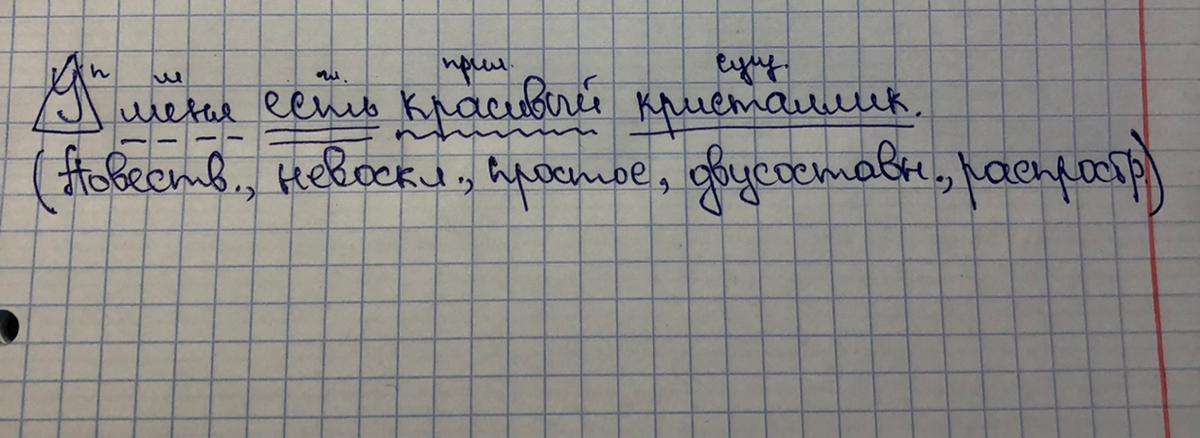 п м гл. прил. сущ.
У меня есть красивый кристаллик.
(Повеств., невоскл., простое, двусоставн., распростр.)